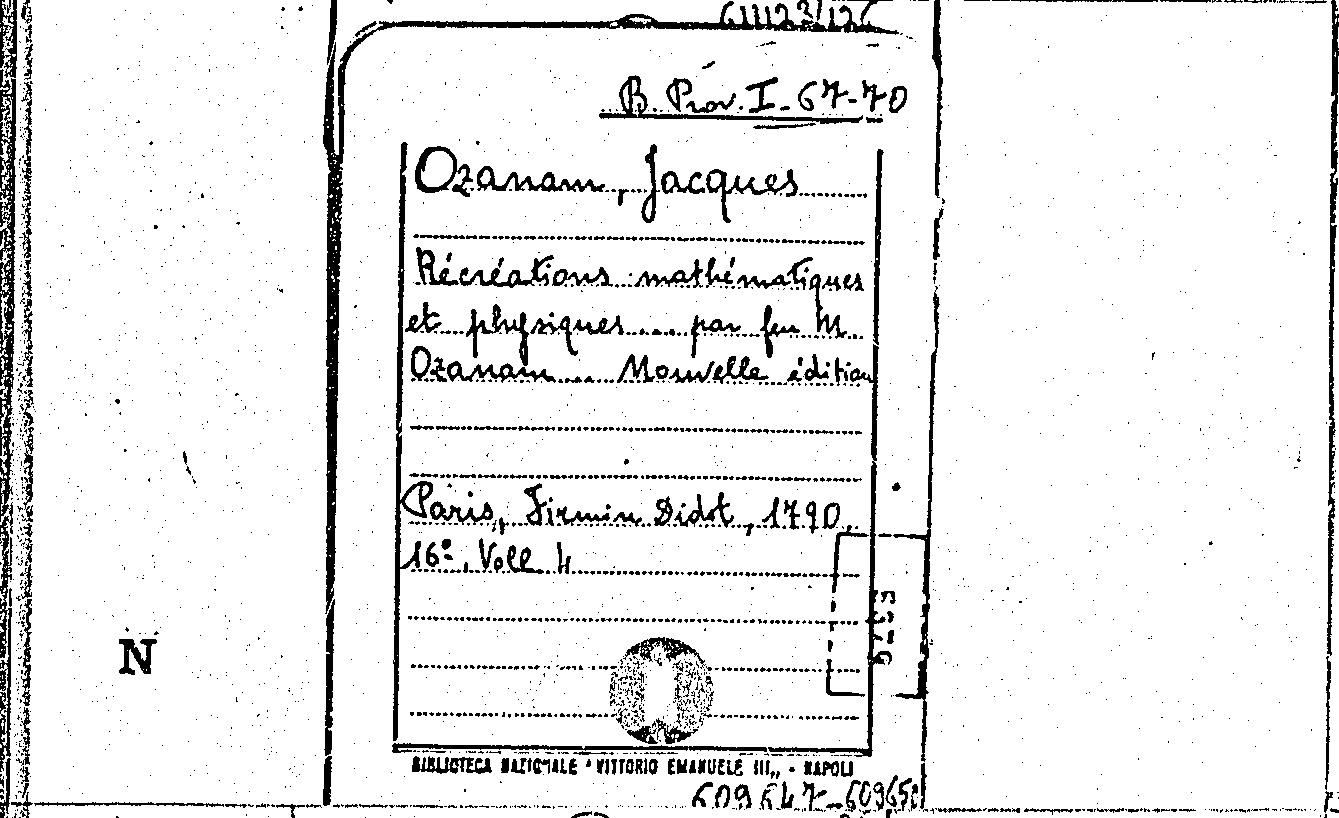 B. Prov. I - 67-70
Ozanam, Jacques
Récréations mathématiques
et physiques ... par feu M.
Ozanam ... Nouvelle édition
Paris, Firmin Didot, 1790,
16°. Voll 4
N
BIBLIOTECA NAZIONALE "VITTORIO EMANUELE III,, - NAPOLI